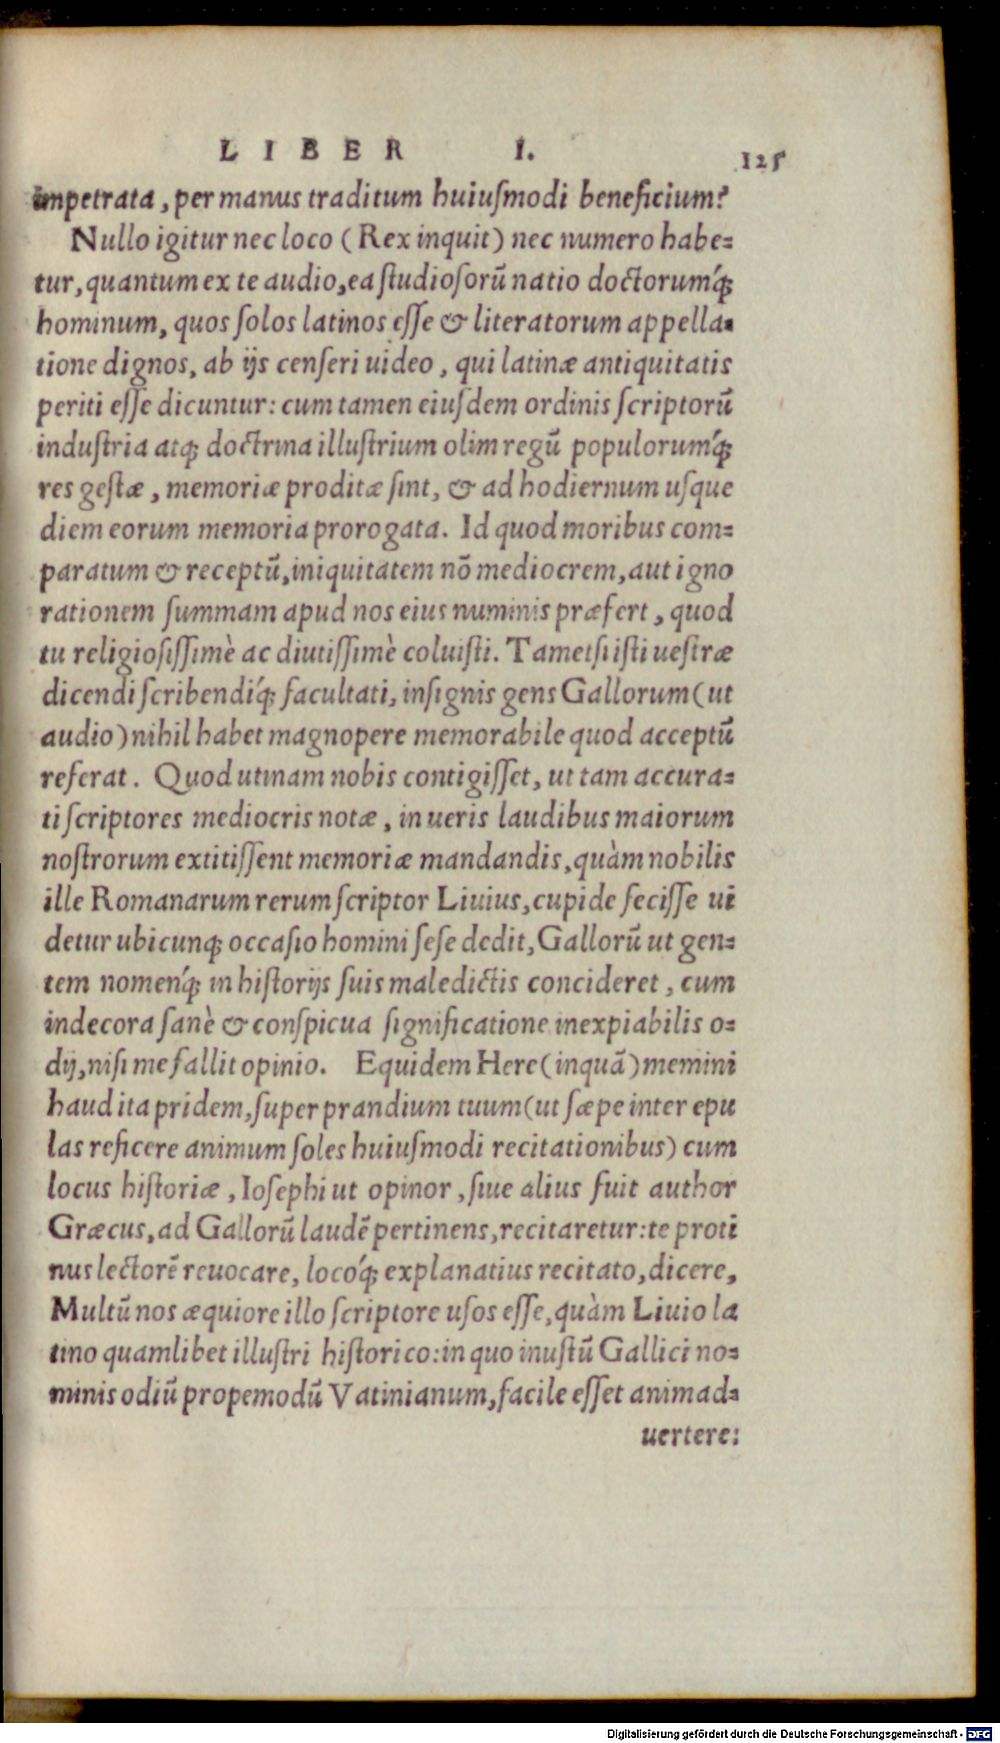 LIBER I. 125
impetrata, per manus traditum huiuſmodi beneficium?
Nullo igitur nec loco (Rex inquit) nec numero habe=
tur, quantum ex te audio, ea ſtudioſorũ natio doctorumq́ꝫ
hominum, quos ſolos latinos eſſe & literatorum appella=
tione dignos, ab ijs cenſeri uideo, qui latinæ antiquitatis
periti eſſe dicuntur: cum tamen eiuſdem ordinis ſcriptorũ
induſtria atqꝫ doctrina illuſtrium olim regũ populorumq́ꝫ
res geſtæ, memoriæ proditæ ſint, & ad hodiernum uſque
diem eorum memoria prorogata. Id quod moribus com=
paratum & receptũ, iniquitatem nõ mediocrem, aut igno
rationem ſummam apud nos eius numinis præfert, quod
tu religioſiſſimè ac diutiſſimè coluiſti. Tametſi iſti ueſtræ
dicendi ſcribendiq́ꝫ facultati, inſignis gens Gallorum (ut
audio) nihil habet magnopere memorabile quod acceptũ
referat. Quod utinam nobis contigiſſet, ut tam accura=
ti ſcriptores mediocris notæ, in ueris laudibus maiorum
noſtrorum extitiſſent memoriæ mandandis, quàm nobilis
ille Romanarum rerum ſcriptor Liuius, cupide feciſſe ui
detur ubicunqꝫ occaſio homini ſeſe dedit, Gallorũ ut gen=
tem nomenq́ꝫ in hiſtorijs ſuis maledictis concideret, cum
indecora ſanè & conſpicua ſignificatione inexpiabilis o=
dij, niſi me fallit opinio. Equidem Here (inquã) memini
haud ita pridem, ſuper prandium tuum (ut ſæpe inter epu
las reficere animum ſoles huiuſmodi recitationibus) cum
locus hiſtoriæ, Ioſephi ut opinor, ſiue alius fuit author
Græcus, ad Gallorũ laudẽ pertinens, recitaretur: te proti
nus lectorẽ reuocare, locoq́ꝫ explanatius recitato, dicere,
Multũ nos æquiore illo ſcriptore uſos eſſe, quàm Liuio la
tino quamlibet illuſtri hiſtorico: in quo inuſtũ Gallici no=
minis odiũ propemodũ Vatinianum, facile eſſet animad=
uertere:
Digitalisierung gefördert durch die Deutsche Forschungsgemeinschaft - DFG